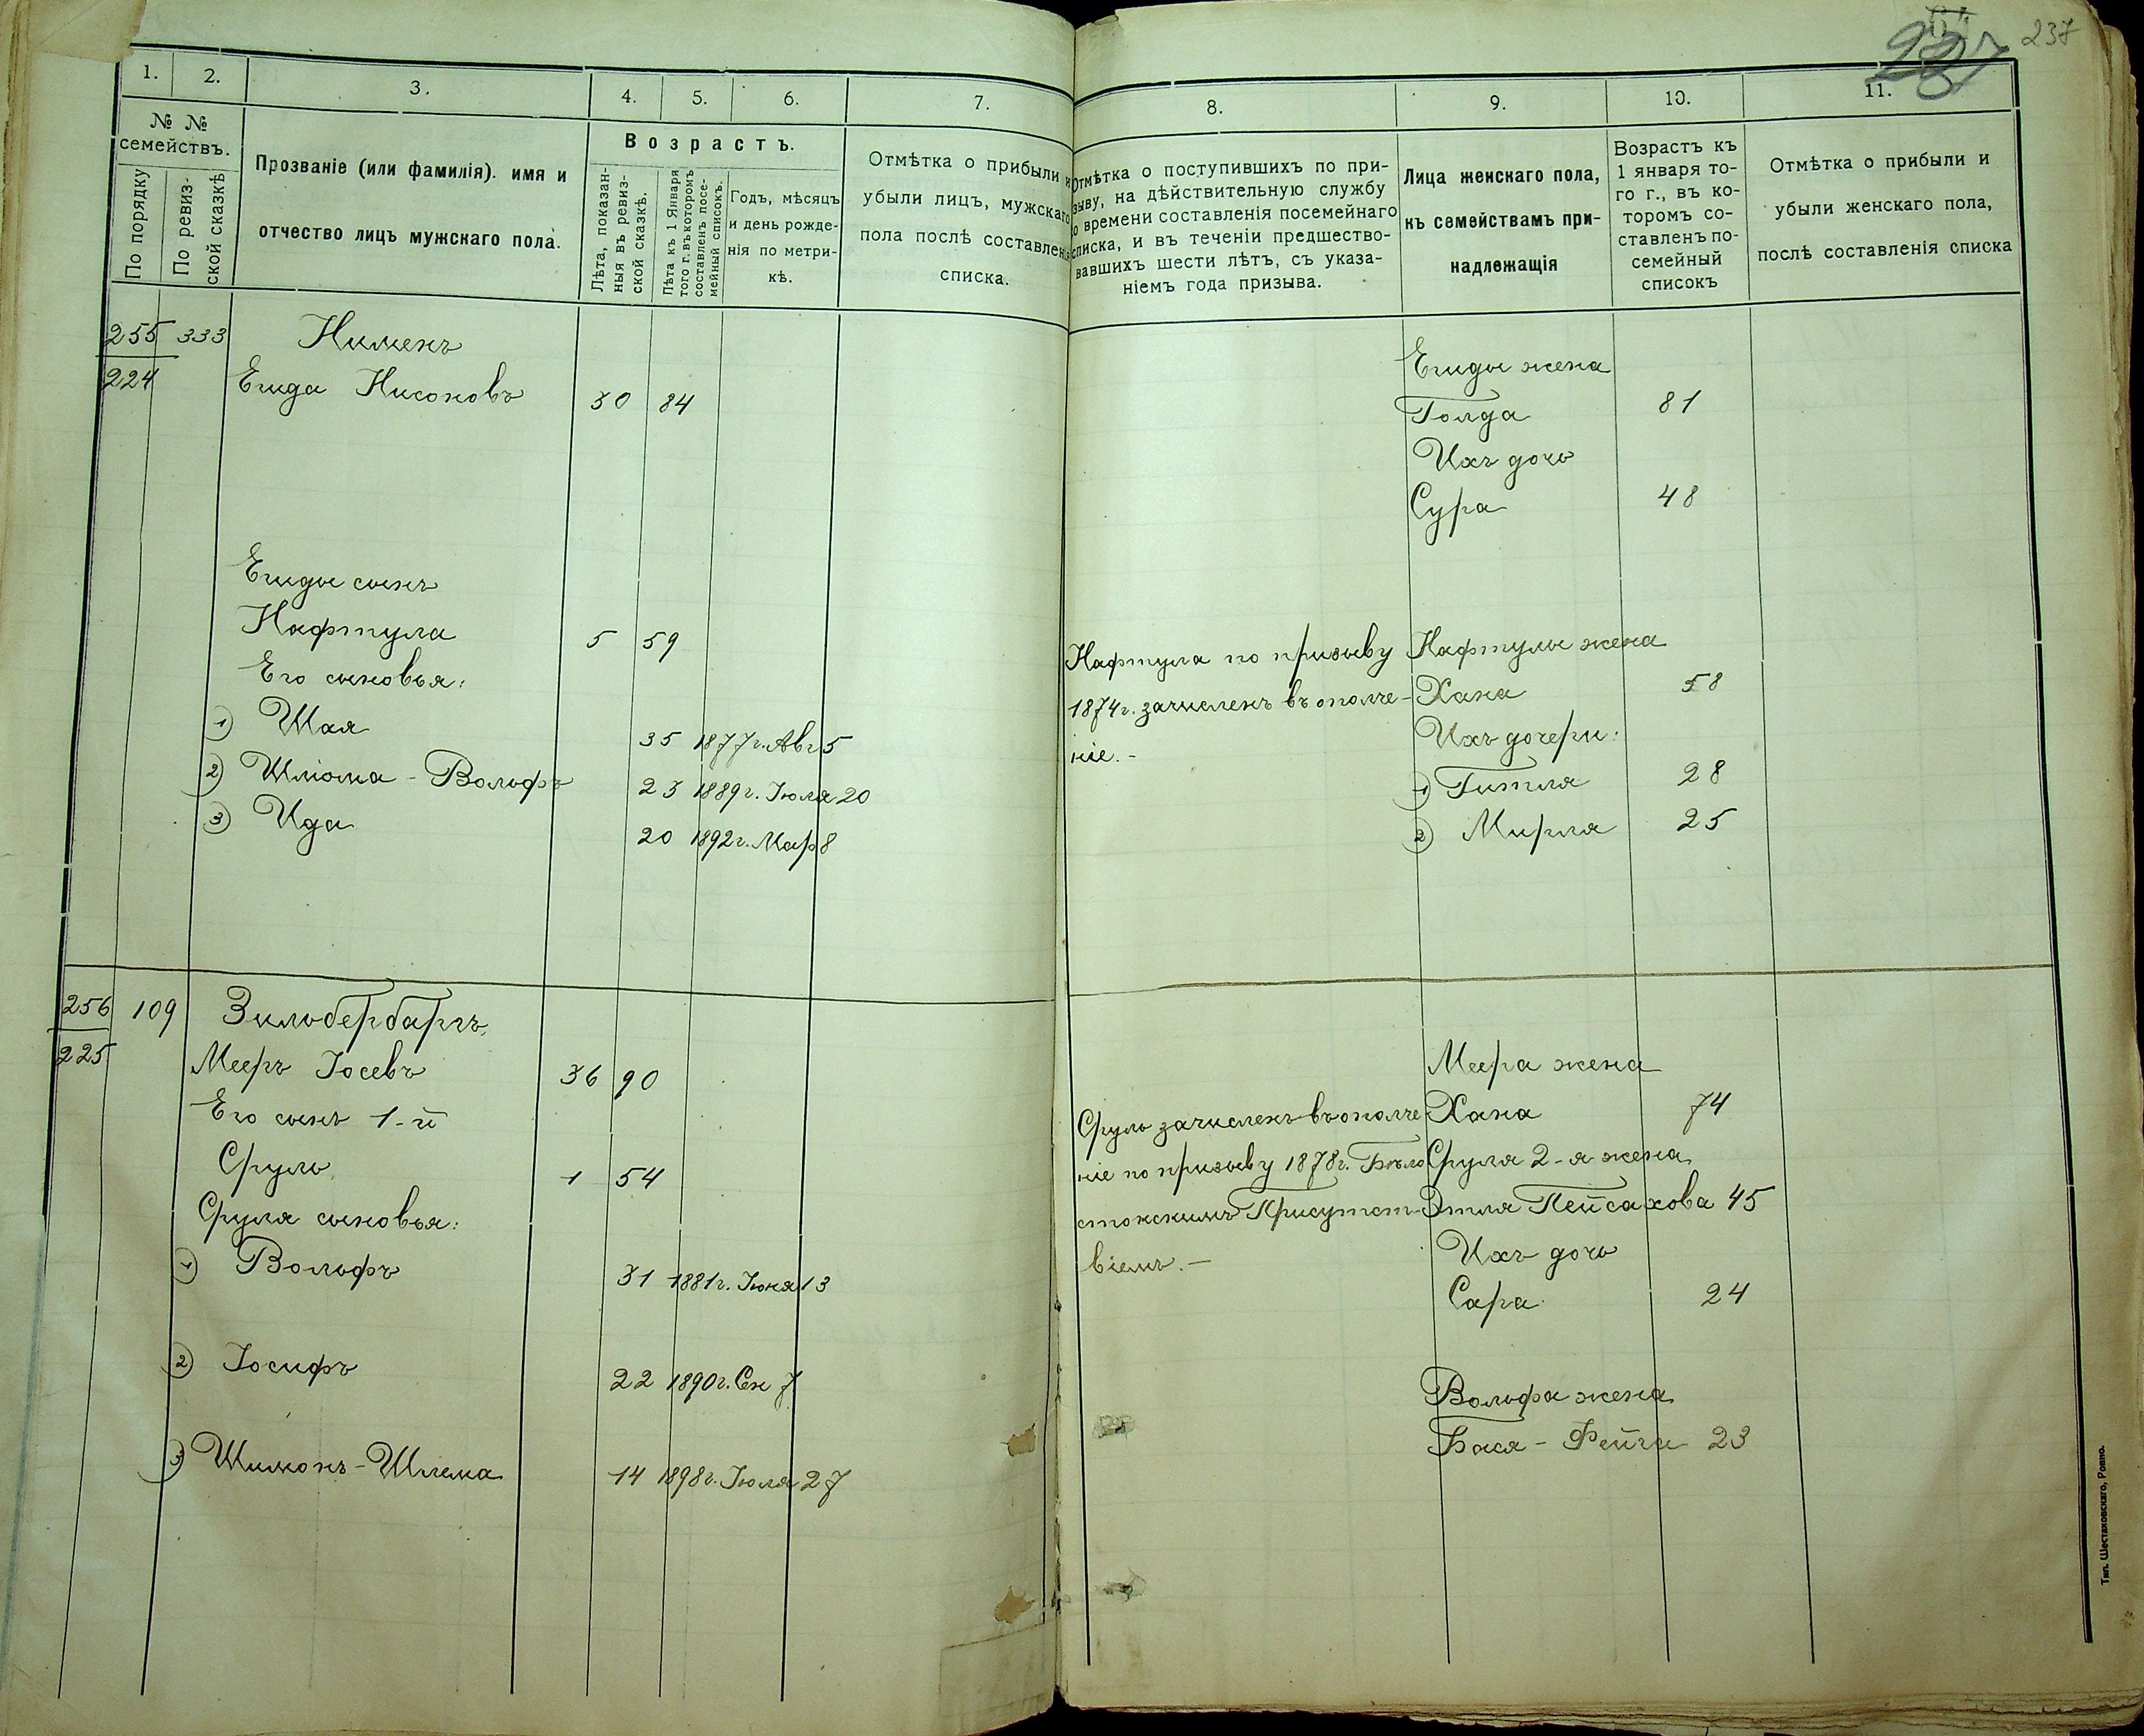 237
1. 2. 3. 4. 5. 6. 7.
№ №
семействъ.
По порядку
По ревиз-
ской сказкѣ
Прозваніе (или фамилія). имя и
отчество лицъ мужскаго пола.
Возрастъ.
Лѣта, показан-
ныя въ ревиз-
ской сказкѣ.
Лѣта къ 1 Января
того г. въ которомъ
составленъ посе-
мейный списокъ.
Годъ, мѣсяцъ
и день рожде-
нія по метри-
кѣ.
Отмѣтка о прибыли и
убыли лицъ, мужскаго
пола послѣ составленія
списка.
255 333 Нименъ
224 Егида Нисоновъ 30 84
Егиды сынъ
Нафтула 5 59
Его сыновья:
1) Шая 35 1877г. Авг 5
2) Шліома - Вольфъ 23 1889г. Іюля 20
3) Ида 20 1892г. Мар 8
256 109 Зильбербаргъ
225 Мееръ Іосевъ 36 90
Его сынъ 1-й
Сруль 1 54
Сруля сыновья:
1) Вольфъ 31 1881г. Іюня 13
2) Іосифъ 22 1890г. Сен 7
3) Шимонъ-Шлема 14 1898г. Іюля 27
8. 9. 10. 11.
Отмѣтка о поступившихъ по при-
зыву, на дѣйствительную службу
о времени составленія посемейнаго
списка, и въ теченіи предшество-
вавшихъ шести лѣтъ, съ указа-
ніемъ года призыва.
Лица женскаго пола,
къ семействамъ при-
надлежащія
Возрастъ къ
1 января то-
го г., въ ко-
торомъ со-
ставленъ по-
семейный
списокъ
Отмѣтка о прибыли и
убыли женскаго пола,
послѣ составленія списка
Егиды жена
Голда 81
Ихъ дочь
Сура 48
Нафтула по призыву
1874г. зачисленъ въ ополче-
ніе.-
Нафтулы жена
Хана 58
Ихъ дочери:
1) Гитля 28
2) Мирля 25
Меера жена
Хана 74
Сруль зачисленъ въ ополче
ніе по призыву 1878г. Бѣло
стокскимъ Присутст-
віемъ.-
Сруля 2-я жена
Этля Пейсахова 45
Ихъ дочь
Сара 24
Вольфа жена
Бася - Фейга 23
Тип. Шестаковскаго, Ровно.